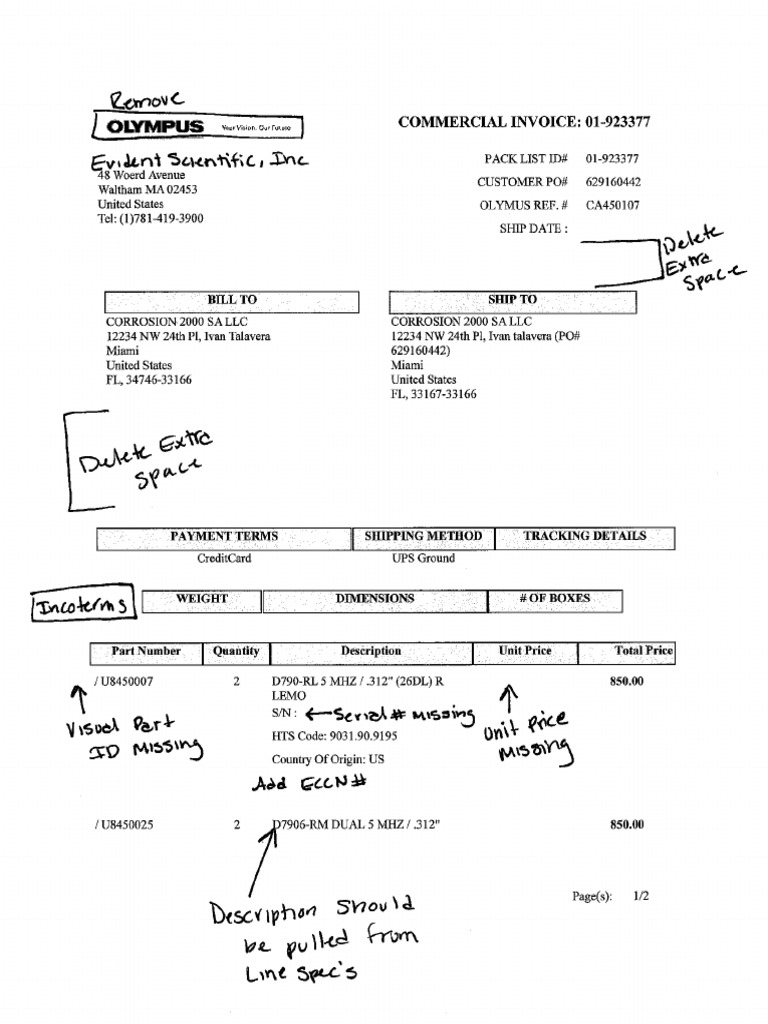 Remove
OLYMPUS Your Vision, Our Future
COMMERCIAL INVOICE: 01-923377
Evident Scientific, Inc
48 Woerd Avenue
Waltham MA 02453
United States
Tel: (1)781-419-3900
PACK LIST ID# 01-923377
CUSTOMER PO# 629160442
OLYMUS REF. # CA450107
SHIP DATE :
Delete
Extra
Space
BILL TO
CORROSION 2000 SA LLC
12234 NW 24th Pl, Ivan Talavera
Miami
United States
FL, 34746-33166
SHIP TO
CORROSION 2000 SA LLC
12234 NW 24th Pl, Ivan talavera (PO#
629160442)
Miami
United States
FL, 33167-33166
Delete Extra
Space
PAYMENT TERMS SHIPPING METHOD TRACKING DETAILS
CreditCard UPS Ground
Incoterms WEIGHT DIMENSIONS # OF BOXES
Part Number Quantity Description Unit Price Total Price
/ U8450007 2 D790-RL 5 MHZ / .312" (26DL) R 850.00
LEMO
S/N : Serial # Missing
HTS Code: 9031.90.9195
Country Of Origin: US
Add ECCN#
Visual Part
ID Missing
Unit Price
Missing
/ U8450025 2 D7906-RM DUAL 5 MHZ / .312" 850.00
Page(s): 1/2
Description Should
be pulled from
Line Spec's